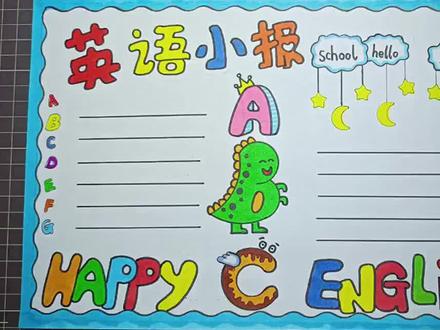 英语小报
school hello
A
B
C
D
E
F
G
A
B
HAPPY C ENGLI